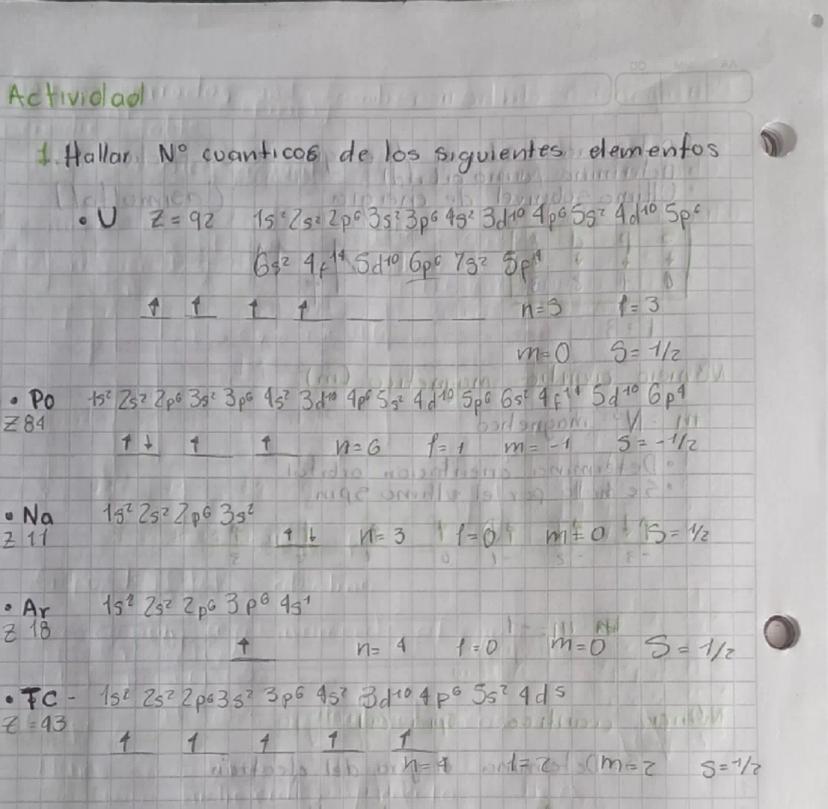 Actividad
1. Hallar Nº cuanticos de los siguientes elementos
• U Z = 92 1s² 2s² 2p⁶ 3s² 3p⁶ 4s² 3d¹⁰ 4p⁶ 5s² 4d¹⁰ 5p⁶
6s² 4f¹⁴ 5d¹⁰ 6p⁶ 7s² 5f⁴
↑ ↑ ↑ ↑ n=5 l=3
m=0 S= 1/2
• Po 1s² 2s² 2p⁶ 3s² 3p⁶ 4s² 3d¹⁰ 4p⁶ 5s² 4d¹⁰ 5p⁶ 6s² 4f¹⁴ 5d¹⁰ 6p⁴
Z 84
↑↓ ↑ ↑ n=6 l=1 m=-1 S=-1/2
• Na 1s² 2s² 2p⁶ 3s²
Z 11 ↑↓ n=3 l=0 m=0 S=1/2
• Ar 1s² 2s² 2p⁶ 3p⁶ 4s¹
Z 18
↑ n= 4 l=0 m=0 S= 1/2
• TC - 1s² 2s² 2p⁶ 3s² 3p⁶ 4s² 3d¹⁰ 4p⁶ 5s² 4d⁵
Z=43
↑ ↑ ↑ ↑ ↑
n=4 l=2 m=2 S=1/2